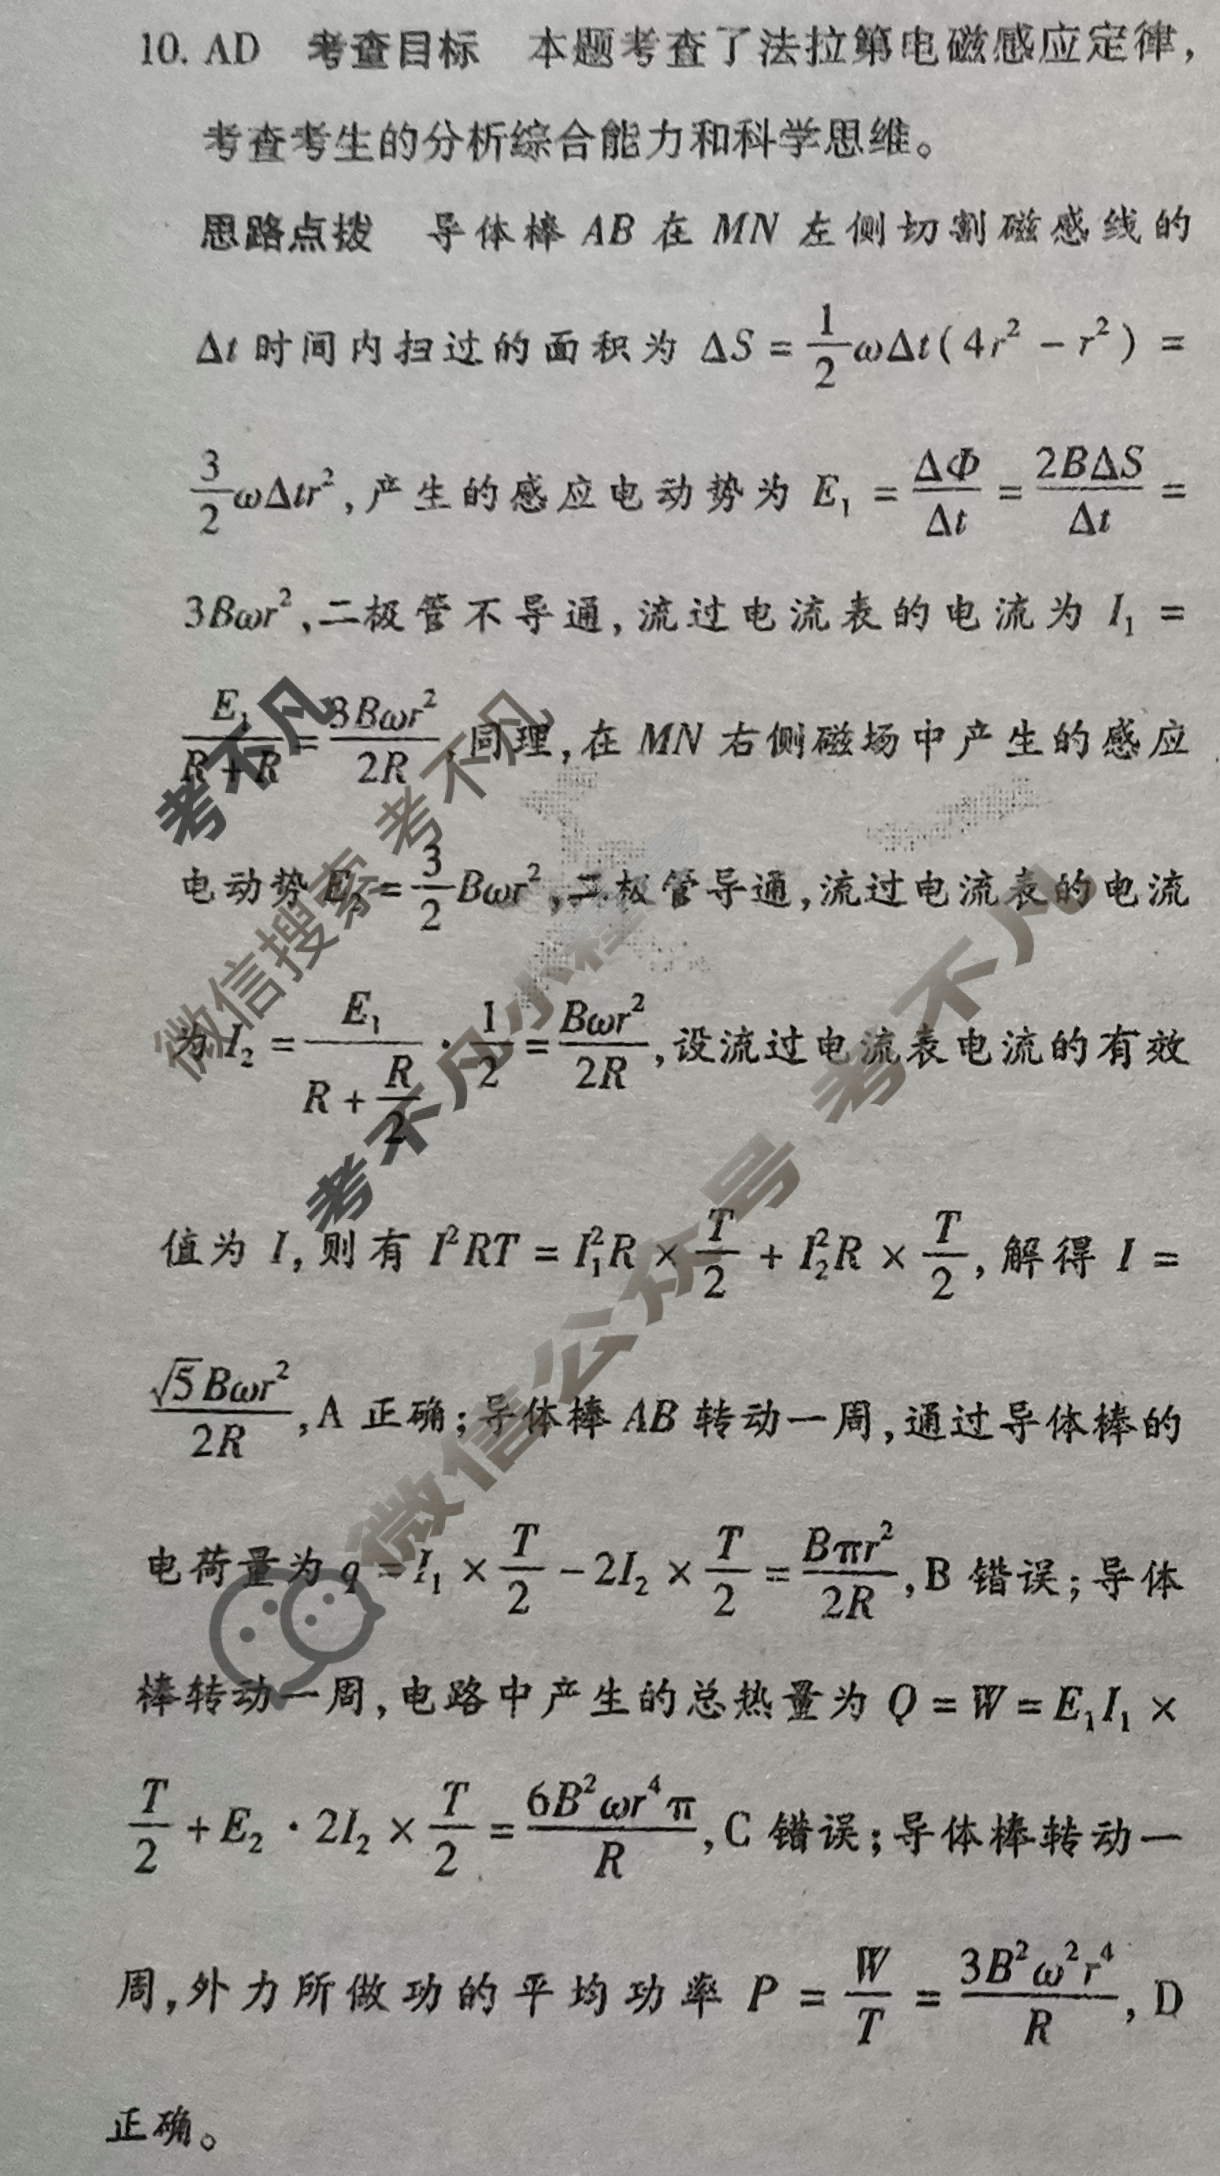 10. AD 考查目标 本题考查了法拉第电磁感应定律，
考查考生的分析综合能力和科学思维。
思路点拨 导体棒 AB 在 MN 左侧切割磁感线的
Δt 时间内扫过的面积为 ΔS = 1/2 ωΔt(4r² - r²) =
3/2 ωΔtr²，产生的感应电动势为 E₁ = ΔΦ/Δt = 2BΔS/Δt =
3Bωr²，二极管不导通，流过电流表的电流为 I₁ =
E₁/(R + R) = 3Bωr²/2R，同理，在 MN 右侧磁场中产生的感应
电动势 E₂ = 3/2 Bωr²，二极管导通，流过电流表的电流
为 I₂ = E₁/(R + R/2) · 1/2 = Bωr²/2R，设流过电流表电流的有效
值为 I，则有 I²RT = I₁²R × T/2 + I₂²R × T/2，解得 I =
√5Bωr²/2R，A 正确；导体棒 AB 转动一周，通过导体棒的
电荷量为 q = I₁ × T/2 - 2I₂ × T/2 = Bπr²/2R，B 错误；导体
棒转动一周，电路中产生的总热量为 Q = W = E₁I₁ ×
T/2 + E₂ · 2I₂ × T/2 = 6B²ωr⁴π/R，C 错误；导体棒转动一
周，外力所做功的平均功率 P = W/T = 3B²ω²r⁴/R，D
正确。
考不凡
微信搜索 考不凡
考不凡小程序
微信公众号 考不凡